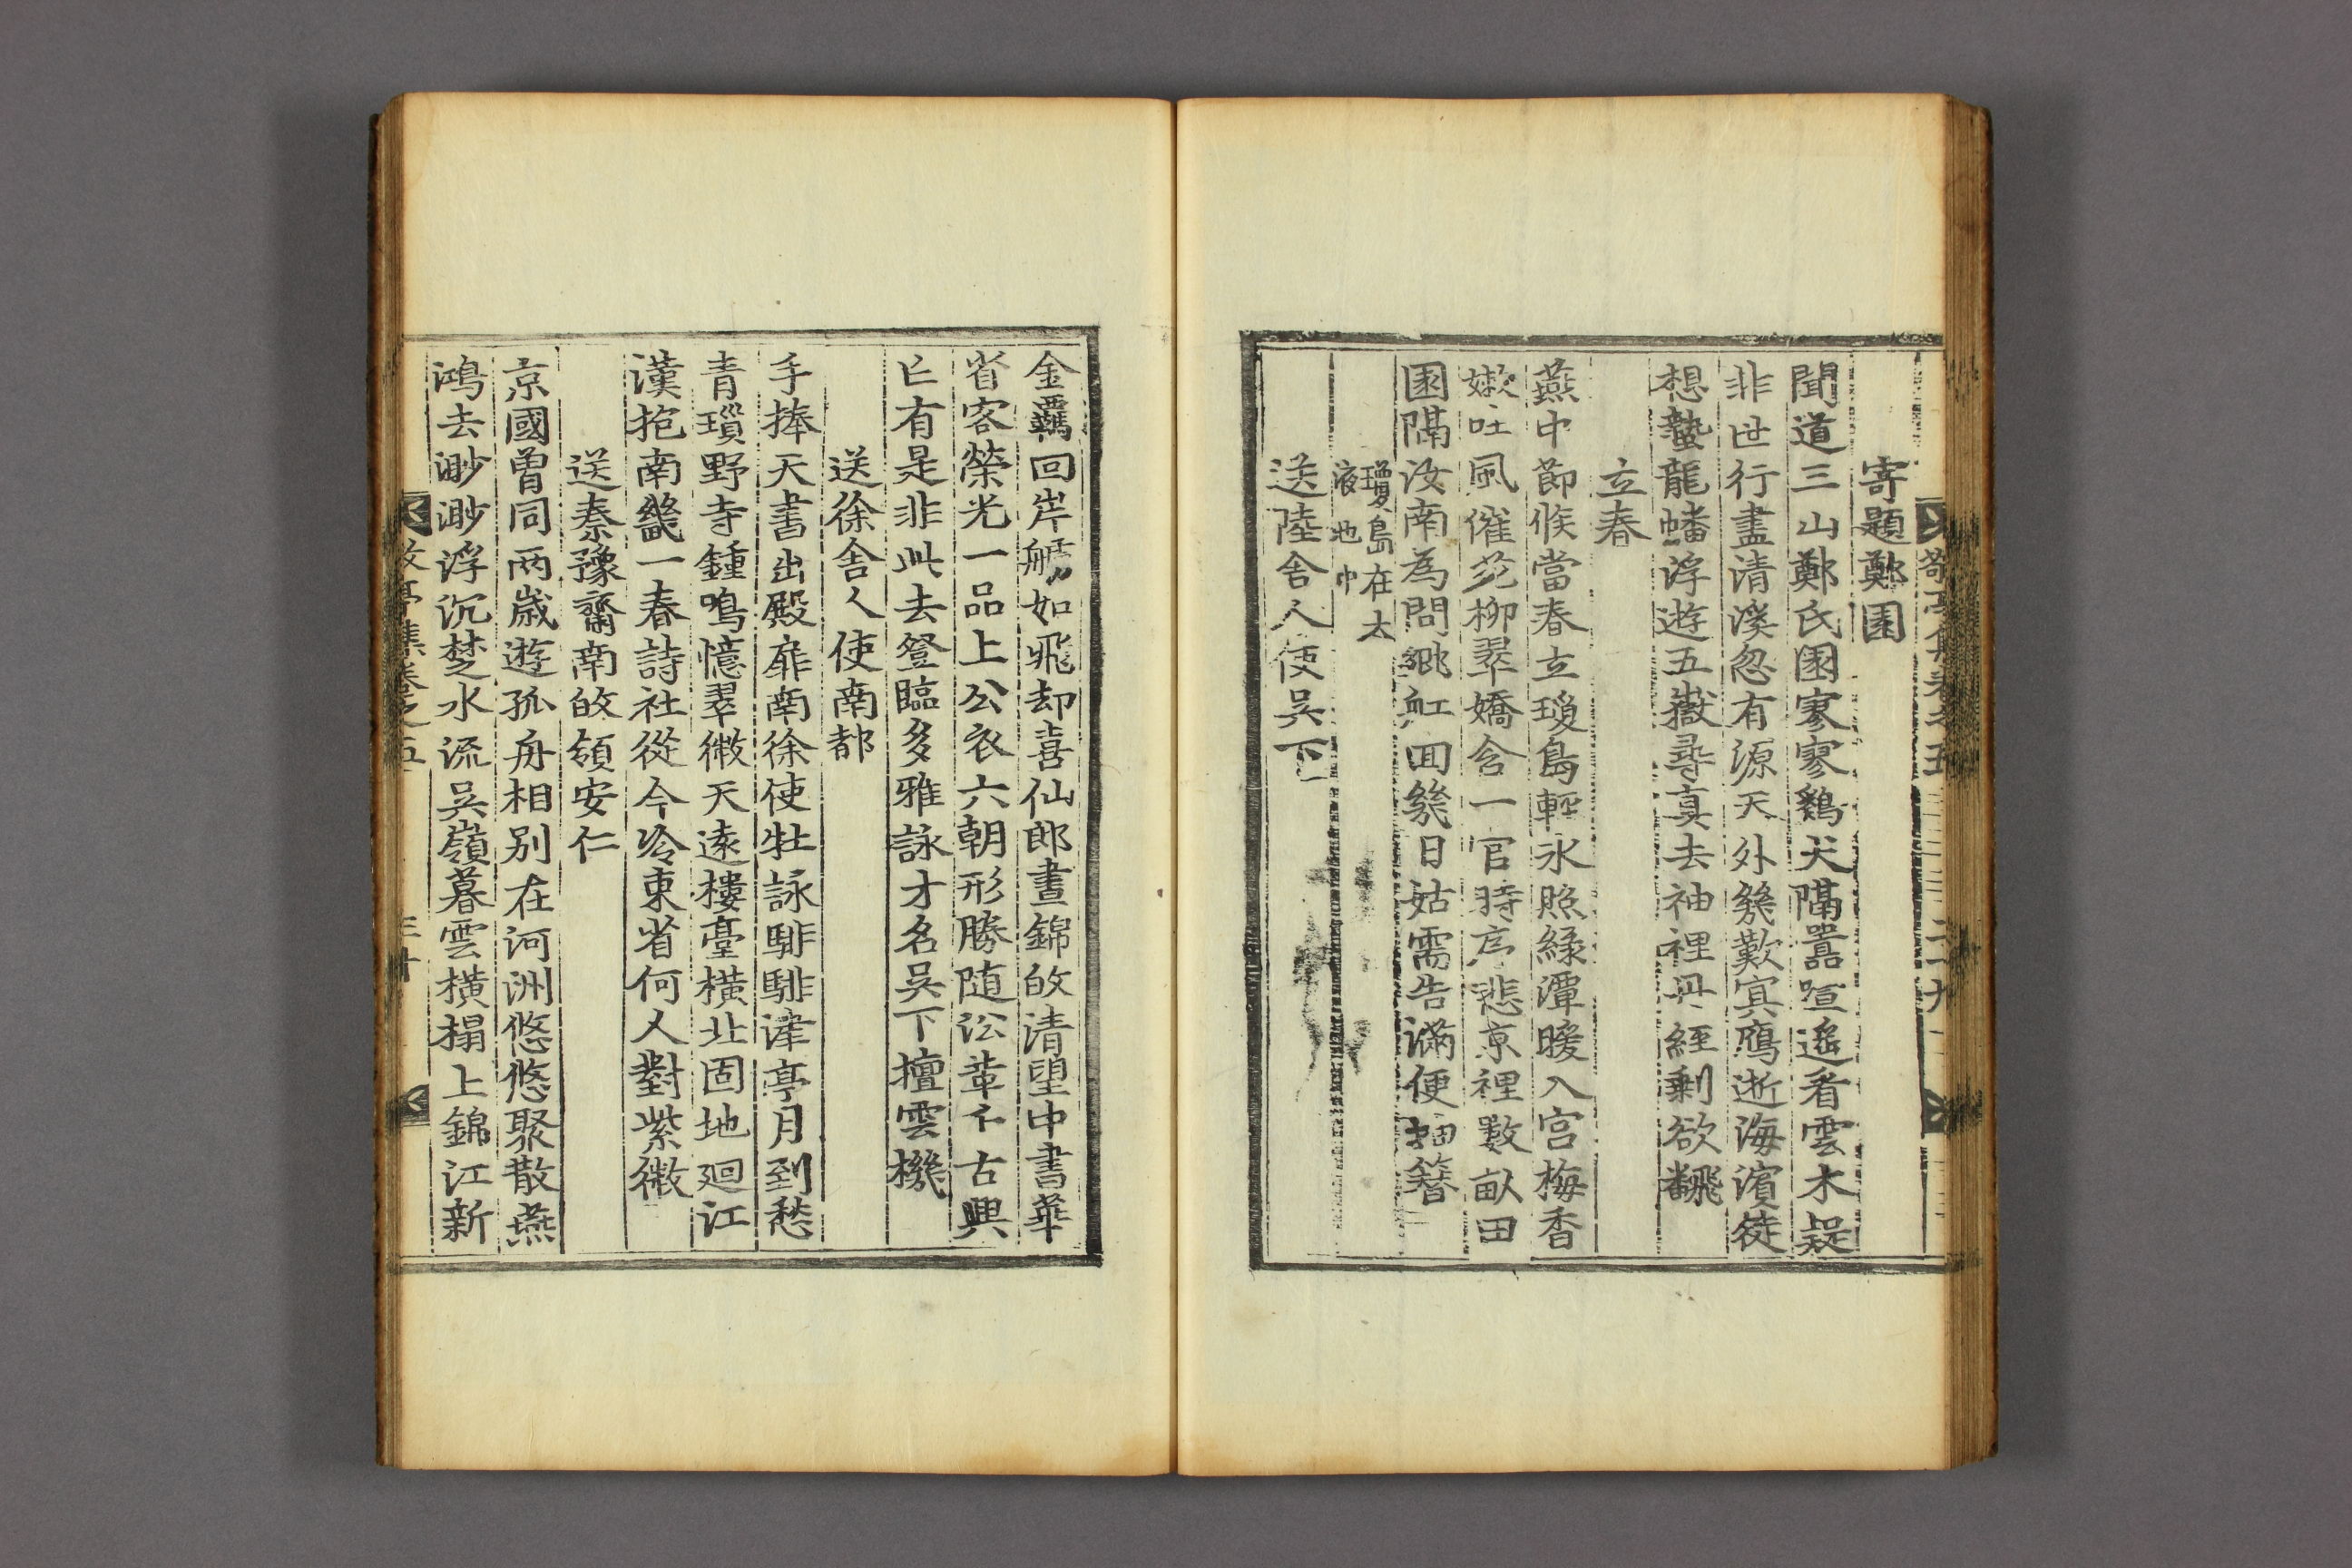 敬亭集卷之五　二十九
寄題鄭園
聞道三山鄭氏園寥寥鷄犬隔囂喧遥看雲木疑
非世行盡清溪忽有源天外幾歎寘鴈逝海濵徒
想蟄龍蟠浮遊五嶽尋真去袖裡丹經剩欲飜
立春
燕中節候當春立瓊島輕氷照綠潭暖入宫梅香
嫩吐風催苑柳翠嬌含一官時序悲京裡數畝田
園隔汝南為問鄉舡囬幾日姑需告滿便抽簮
瓊島在太
液池中
送陸舍人使吳下
金羈回岸舸如飛却喜仙郎晝錦㱕清望中書華
省客榮光一品上公衣六朝形勝随訟葦千古興
亡有是非此去登臨多雅詠才名吳下擅雲機
送徐舍人使南都
手捧天書出殿扉南徐使牡詠騑騑津亭月到愁
青瑣野寺鍾鳴憶翠微天遠樓臺橫北固地廻江
漢抱南畿一春詩社從今冷東省何人對紫微
送秦豫齋南㱕領安仁
京國曾同两歳遊孤舟相别在河洲悠悠聚散燕
鴻去渺渺浮沉楚水流吳嶺暮雲橫榻上錦江新
敬亭集卷之五　三十